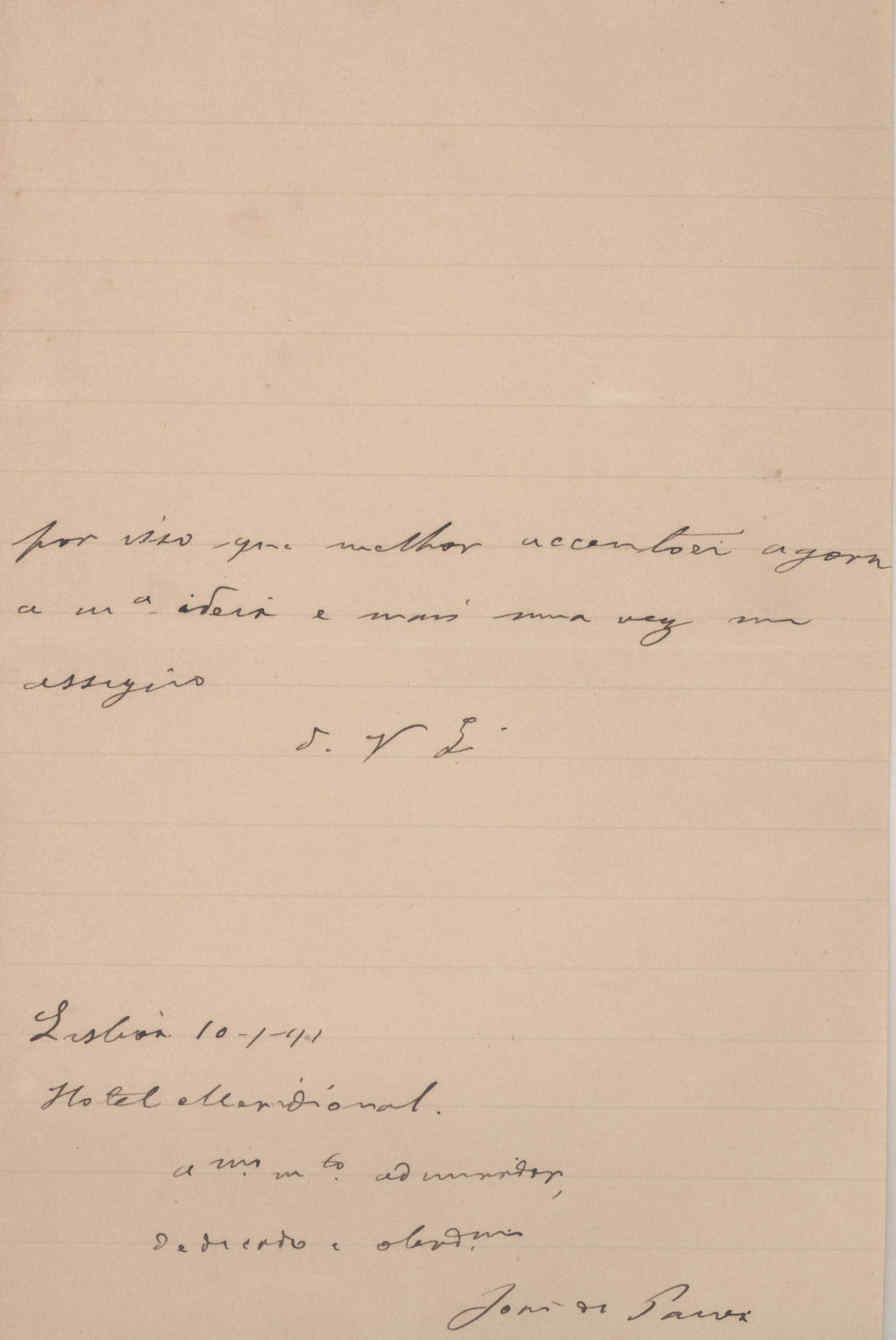 por isso que melhor accentuei agora
a m.ª ideia e mais uma vez me
assigno
d. V E.
Lisboa 10-1-91
Hotel Meridional.
a.mo m.to admirador,
dedicado e obrgd.mo
José de